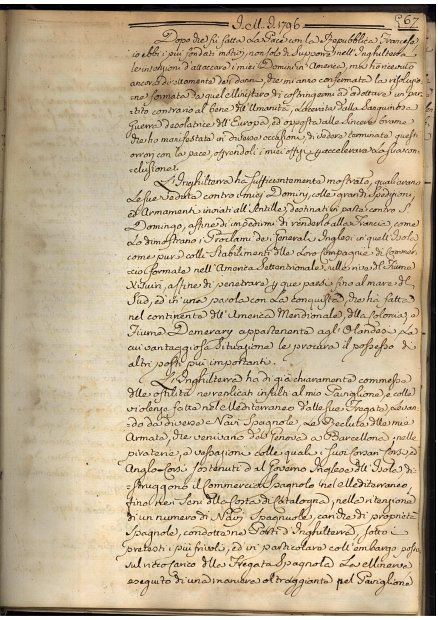 A.M. D. 1796
567
Dopo che fu fatta La Pace con la Repubblica Francese
io ebbi i più fondati motivi, non solo di Supporre nell'Inghilterra
le intenzioni d'attaccare i miei Dominj in America, ma ho ricevuto
ancora direttamente de' danni, che mi anno confermata la risoluzi-
one formata da quel Ministero di costringermi ad adottare un par-
tito contrario al bene dell'Umanità, Lacerata dalla Sanguinosa
Guerra desolatrice dell'Europa, ed opposta alle Sincere brame
che ho manifestata in diverse occasioni di vedere terminate questi
orrori con la pace, offrendoli i miei offizj p. accelerare La Sua con-
clusione.
L'Inghilterra ha sufficientemente mostrato, quali erano
Le sue Vedute contro i miei Dominj, colle grandi Spedizioni,
ed Armamenti inviati all'Antille, destinati in parte contro S.
Domingo, affine di impedirmi di renderlo alla Francia come
Lo dimostrano i Proclami de' Generali Inglesi in quell'Isola
come pure colli Stabilimenti delle Loro Compagnie di Commer-
cio formate nell'America Settentrionale, sulle rive del Fiume
affine di penetrare p. que' paesi fino al mare del
Sud, ed in una parola con La conquista, che ha fatta
nel continente dell'America Meridionale, della Colonia, e
Fiume Demerary appartenente agl'Olandesi, La
cui vantaggiosa Situazione le procura il possesso di
altri posti più importanti.
L'Inghilterra ha di già chiaramente commesse
delle ostilità ne' replicati insulti al mio Paviglione, e colle
violenze fatte nel Mediterraneo dalle sue Fregate, Levan-
do da diverse Navi Spagnole, Le Reclute delle mie
Armate, che venivano da Genova a Barcellona, nelle
piraterie, e vessazioni colle quali i suoi Corsari Corsi, ed
Anglo-Corsi sostenuti dal Governo Inglese dell'Isola di-
struggono il Commercio Spagnolo nel Mediterraneo,
fino nei Seni della Costa di Catalogna, nelle ritenzione
di un numero di Navi Spagnuole, cariche di proprietà
Spagnole, condotte ne' Porti d'Inghilterra, sotto i
pretesti i più frivoli, ed in particolare coll'embargo posto
sul ricco carico della Fregata Spagnola La Minerva
eseguito di una maniera oltraggiante pel Paviglione